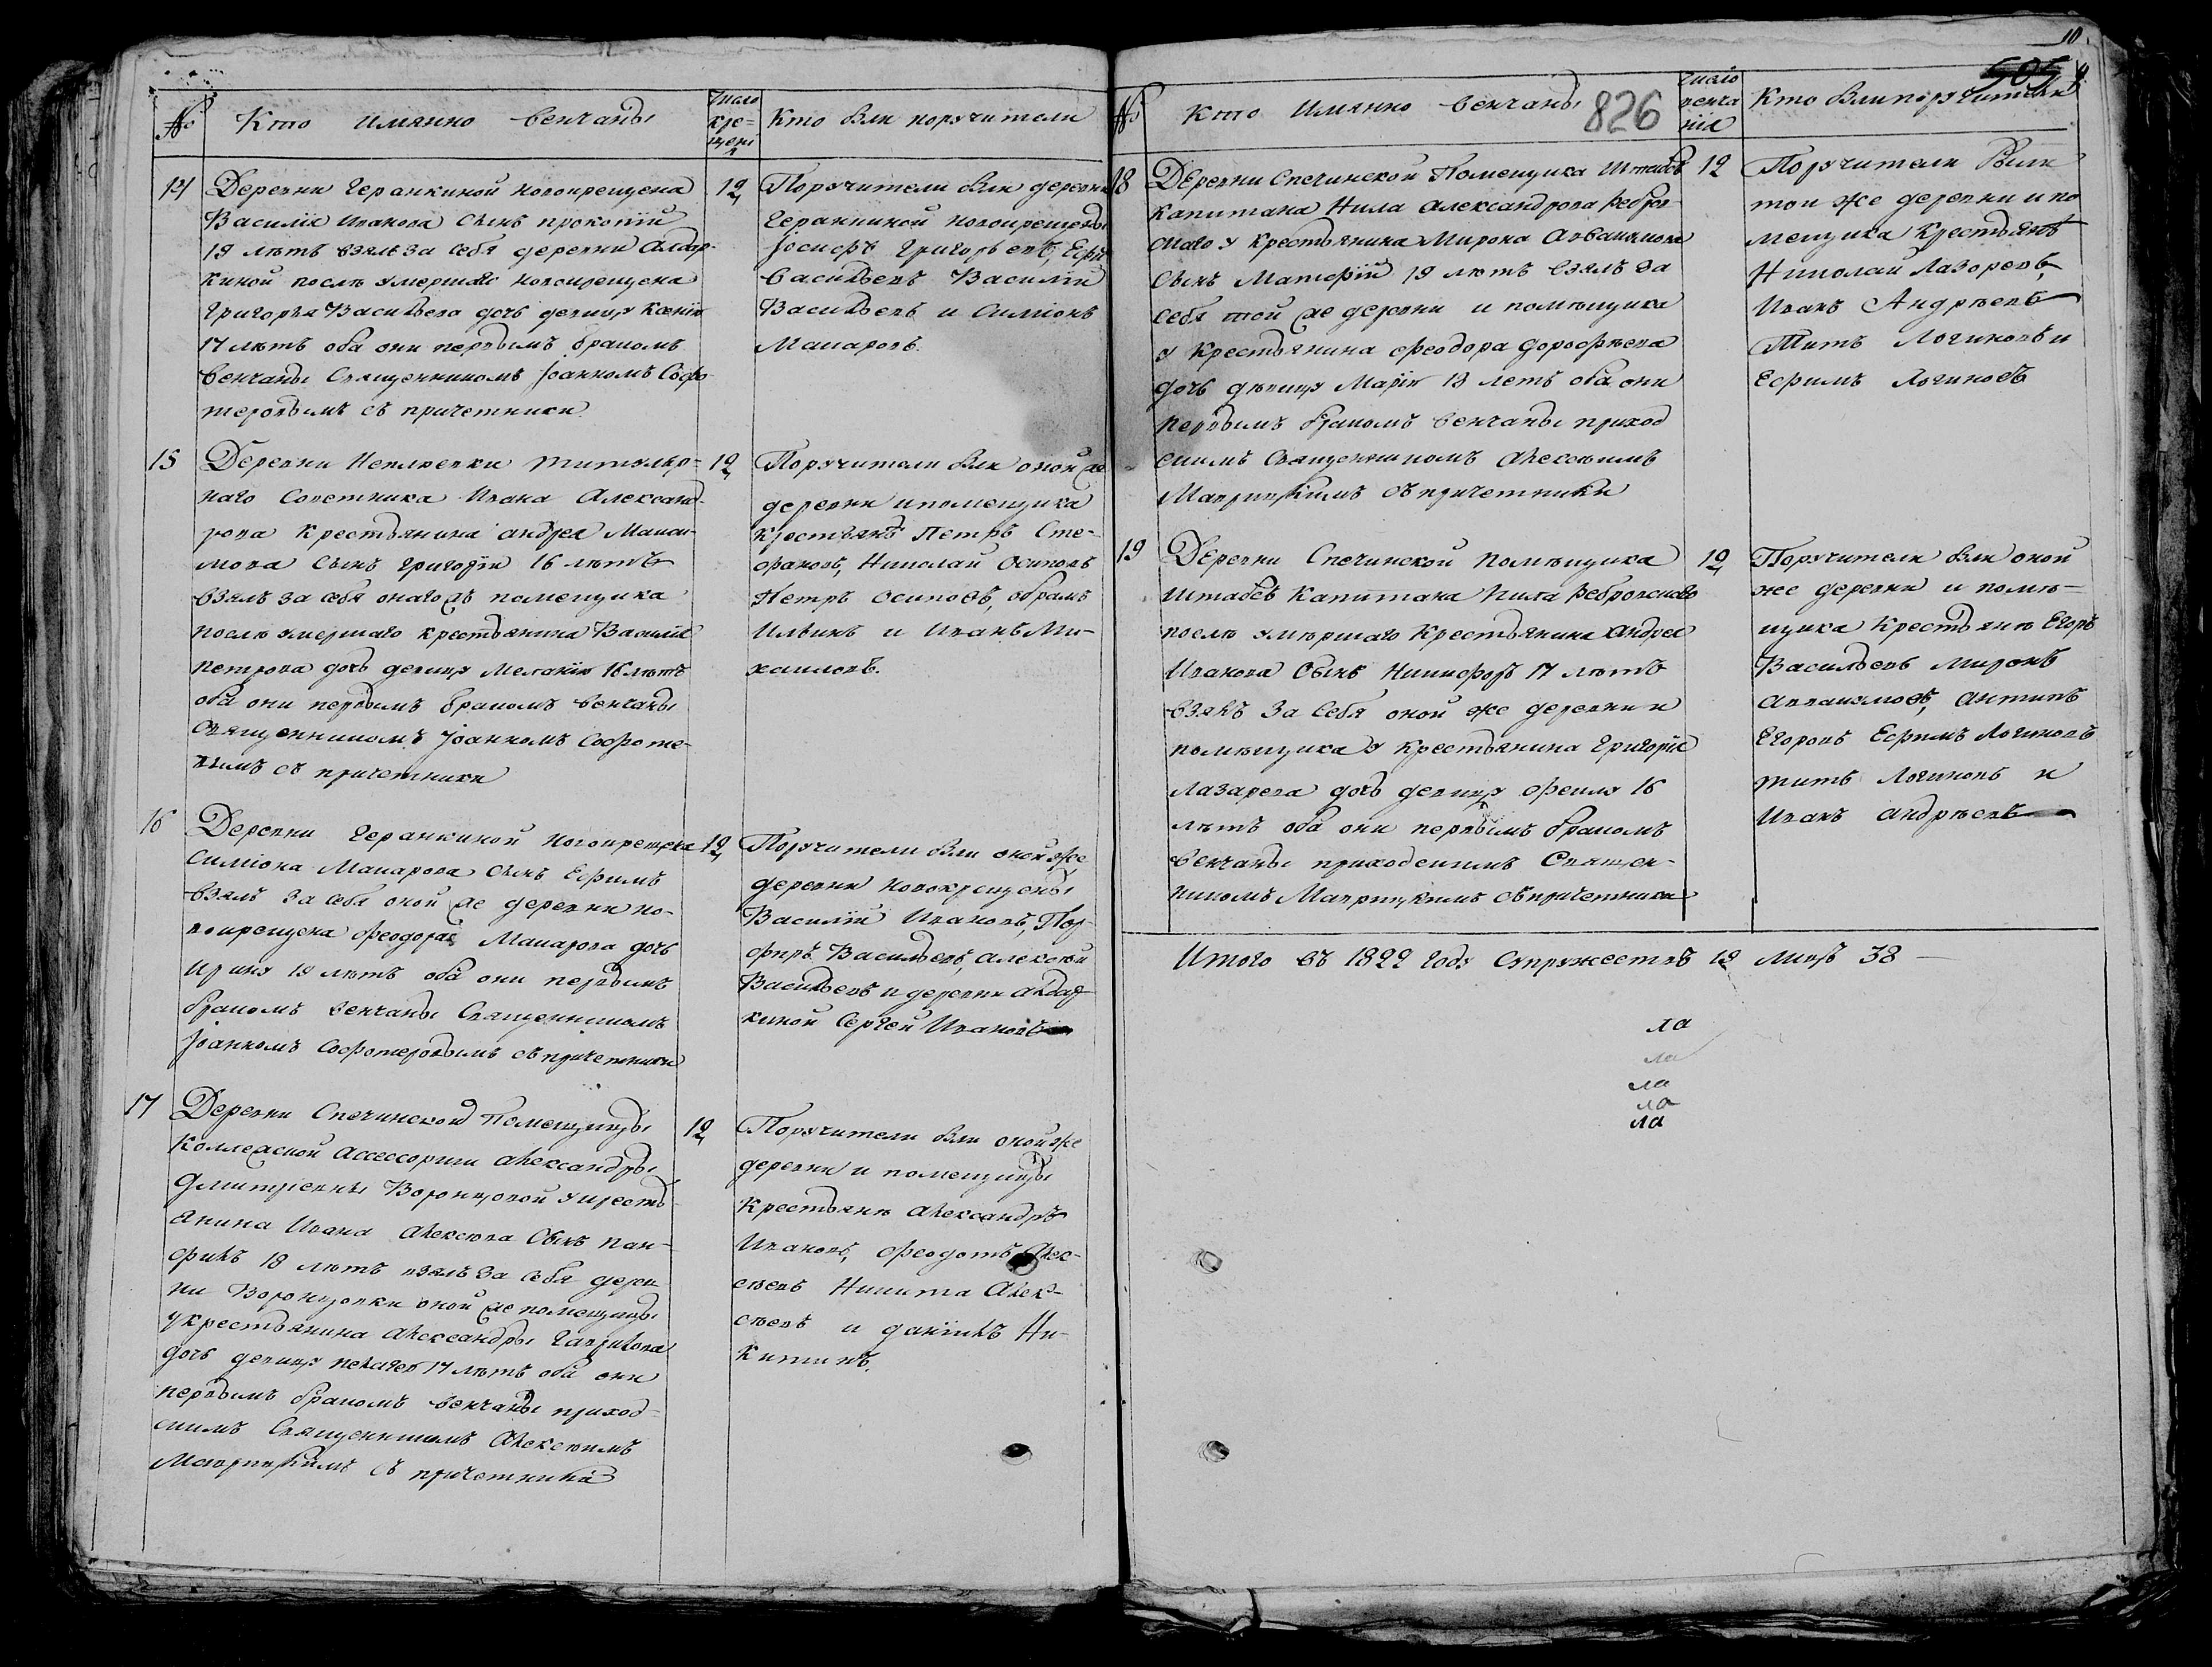 №
Кто имянно венчаны
Число
кре-
щени
я
Кто бли поручители
14
Деревни Геранкиной новокрещена
Василiя Иванова Сынъ прокопiй
19 летъ взялъ за себя деревни Алдар-
киной после умершаго новокрещена
Григорья Васильева дочь девицу Ксенiю
17 летъ оба они первымъ бракомъ
венчаны Священникомъ Iоанномъ Софо-
теровымъ съ причетники.
12
Поручители бли деревни
Геранкиной новокрещены
Iосифъ Григорьевъ,
Васильевъ Василiй
Васильевъ и Симiонъ
Макаровъ.
15
Деревни Неплюевки титуляр-
наго Советника Ивана Александ-
рова крестьянина андрея Макси-
мова Сынъ Григорiй 16 летъ
взялъ за себя онагожъ помещика
после умершаго крестьянина Василiя
петрова дочь девицу Меланiю 16 летъ
оба они первымъ бракомъ венчаны
Священникомъ Iоанномъ Софоте-
вымъ съ причетники
12
Поручители бли оной же
деревни и помещика
крестьянъ Петръ Сте-
фановъ, Николай Осиповъ
Петръ Осиповъ, абрамъ
Ильинъ и Иванъ Ми-
хаиловъ.
16
Деревни Геранкиной новокрещена
Симiона Макарова сынъ Ефимъ
взялъ за себя оной же деревни но-
вокрещена Феодора Макарова дочь
Ирину 19 летъ оба они первымъ
бракомъ венчаны Священникомъ
Iоанномъ Софотеровымъ съ причетники
12
Поручители бли оной же
деревни новокрещены
Василiй Ивановъ, Пор-
фиръ Васильевъ, алексей
Васильевъ и деревни алдар
киной Сергей Ивановъ
17
Деревни Спечинской Помещицы
Коллежской Ассессорши александры
Дмитрiевны Воронцовой у кресть
янина Ивана алексеева Сынъ пан-
филъ 18 летъ взялъ за себя дерев
ни Воронцовки оной же помещицы
у крестьянина александры Гаврилова
дочь девицу пелагею 17 летъ оба они
первымъ бракомъ венчаны приход-
скимъ Священникомъ алексеимъ
Мавринскимъ съ причетники
12
Поручители бли оной же
деревни и помещицы
Крестьяне александръ
Ивановъ, феодотъ алек-
сеевъ Никита алек-
сеевъ и данiилъ Ни-
китинъ.
10
505
№
Кто Имянно венчаны
826
число
венча
нiя
Кто бли поручители
18
Деревни Спечинской Помещика Штабсъ
капитана Нила александрова Ребров-
скаго у крестьянина Мирона
Сынъ Матфiй 19 летъ взялъ за
себя той же деревни и помещика
у Крестьянина феодора дорофеева
дочь девицу Марiю 19 летъ оба они
первымъ бракомъ венчаны приход
скимъ Священникомъ алексеимъ
Мавринскимъ съ причетники
12
Поручители были
той же деревни и по
мещика Крестьяне
Николай Лазоревъ,
Иванъ Андреевъ
Титъ Логиновъ и
Ефимъ Логиновъ
19
Деревни Спечинской помещика
Штабсъ Капитана Нила Ребровскаго
после умершаго Крестьянина андрея
Иванова Сынъ Никифоръ 17 летъ
взялъ за себя оной же деревни и
помещика у крестьянина Григорiя
Лазарева дочь девицу Феклу 16
летъ оба они первымъ бракомъ
венчаны приходскимъ Священ-
никомъ Мавринскимъ съ причетники
12
Поручители бли оной
же деревни и поме-
щика Крестьяне Егоръ
Васильевъ миронъ
антипъ
Егоровъ Ефимъ Логиновъ
титъ Логиновъ и
Иванъ андреевъ
Итого въ 1822 году Супружествъ 19 лицъ 38
ла
ла
ла
ла
ла